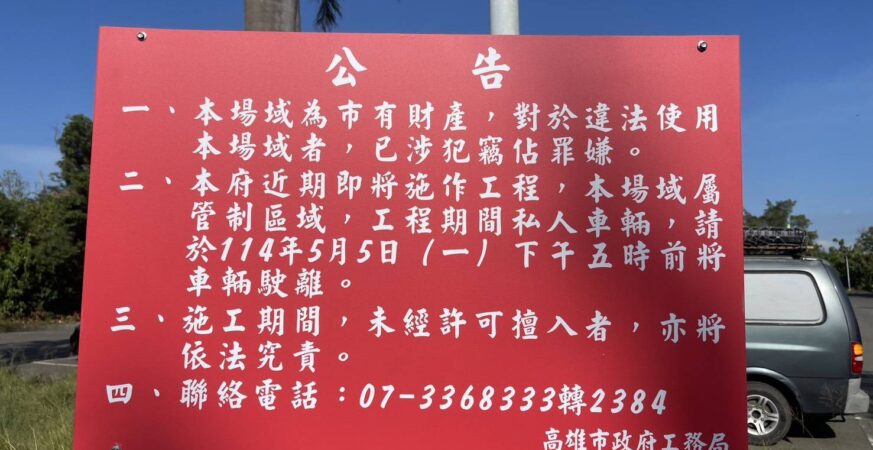 公告
一、本場域為市有財產，對於違法使用
本場域者，已涉犯竊佔罪嫌。
二、本府近期即將施作工程，本場域屬
管制區域，工程期間私人車輛，請
於114年5月5日（一）下午五時前將
車輛駛離。
三、施工期間，未經許可擅入者，亦將
依法究責。
四、聯絡電話：07-3368333轉2384
高雄市政府工務局